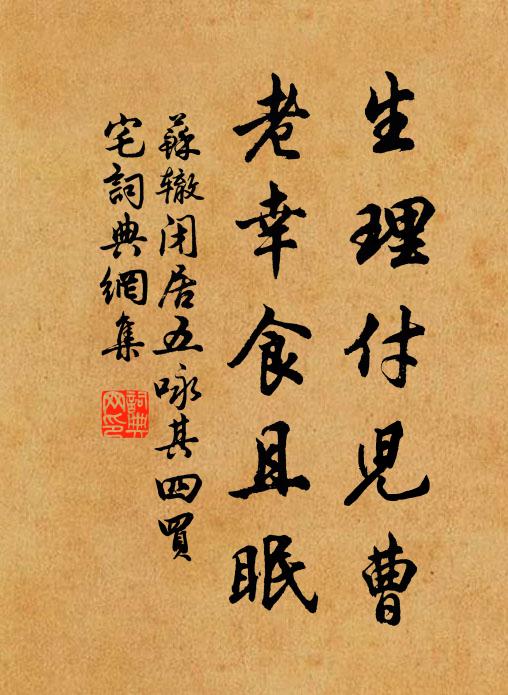 生理付兒曹
老幸食且眠
蘇辙闭居五咏其四買
宅詞典網集
詞典
网印